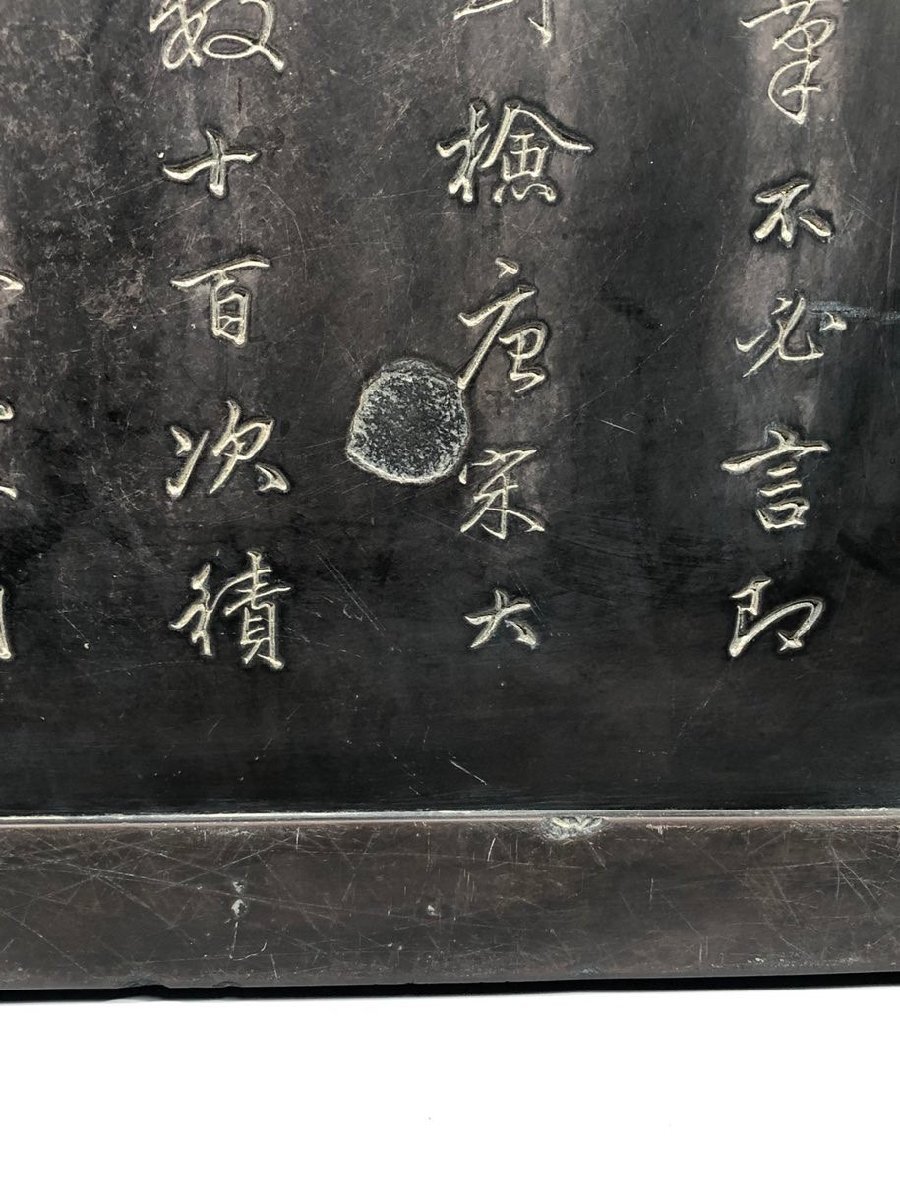 不必言即
檢唐宋大
數十百次積